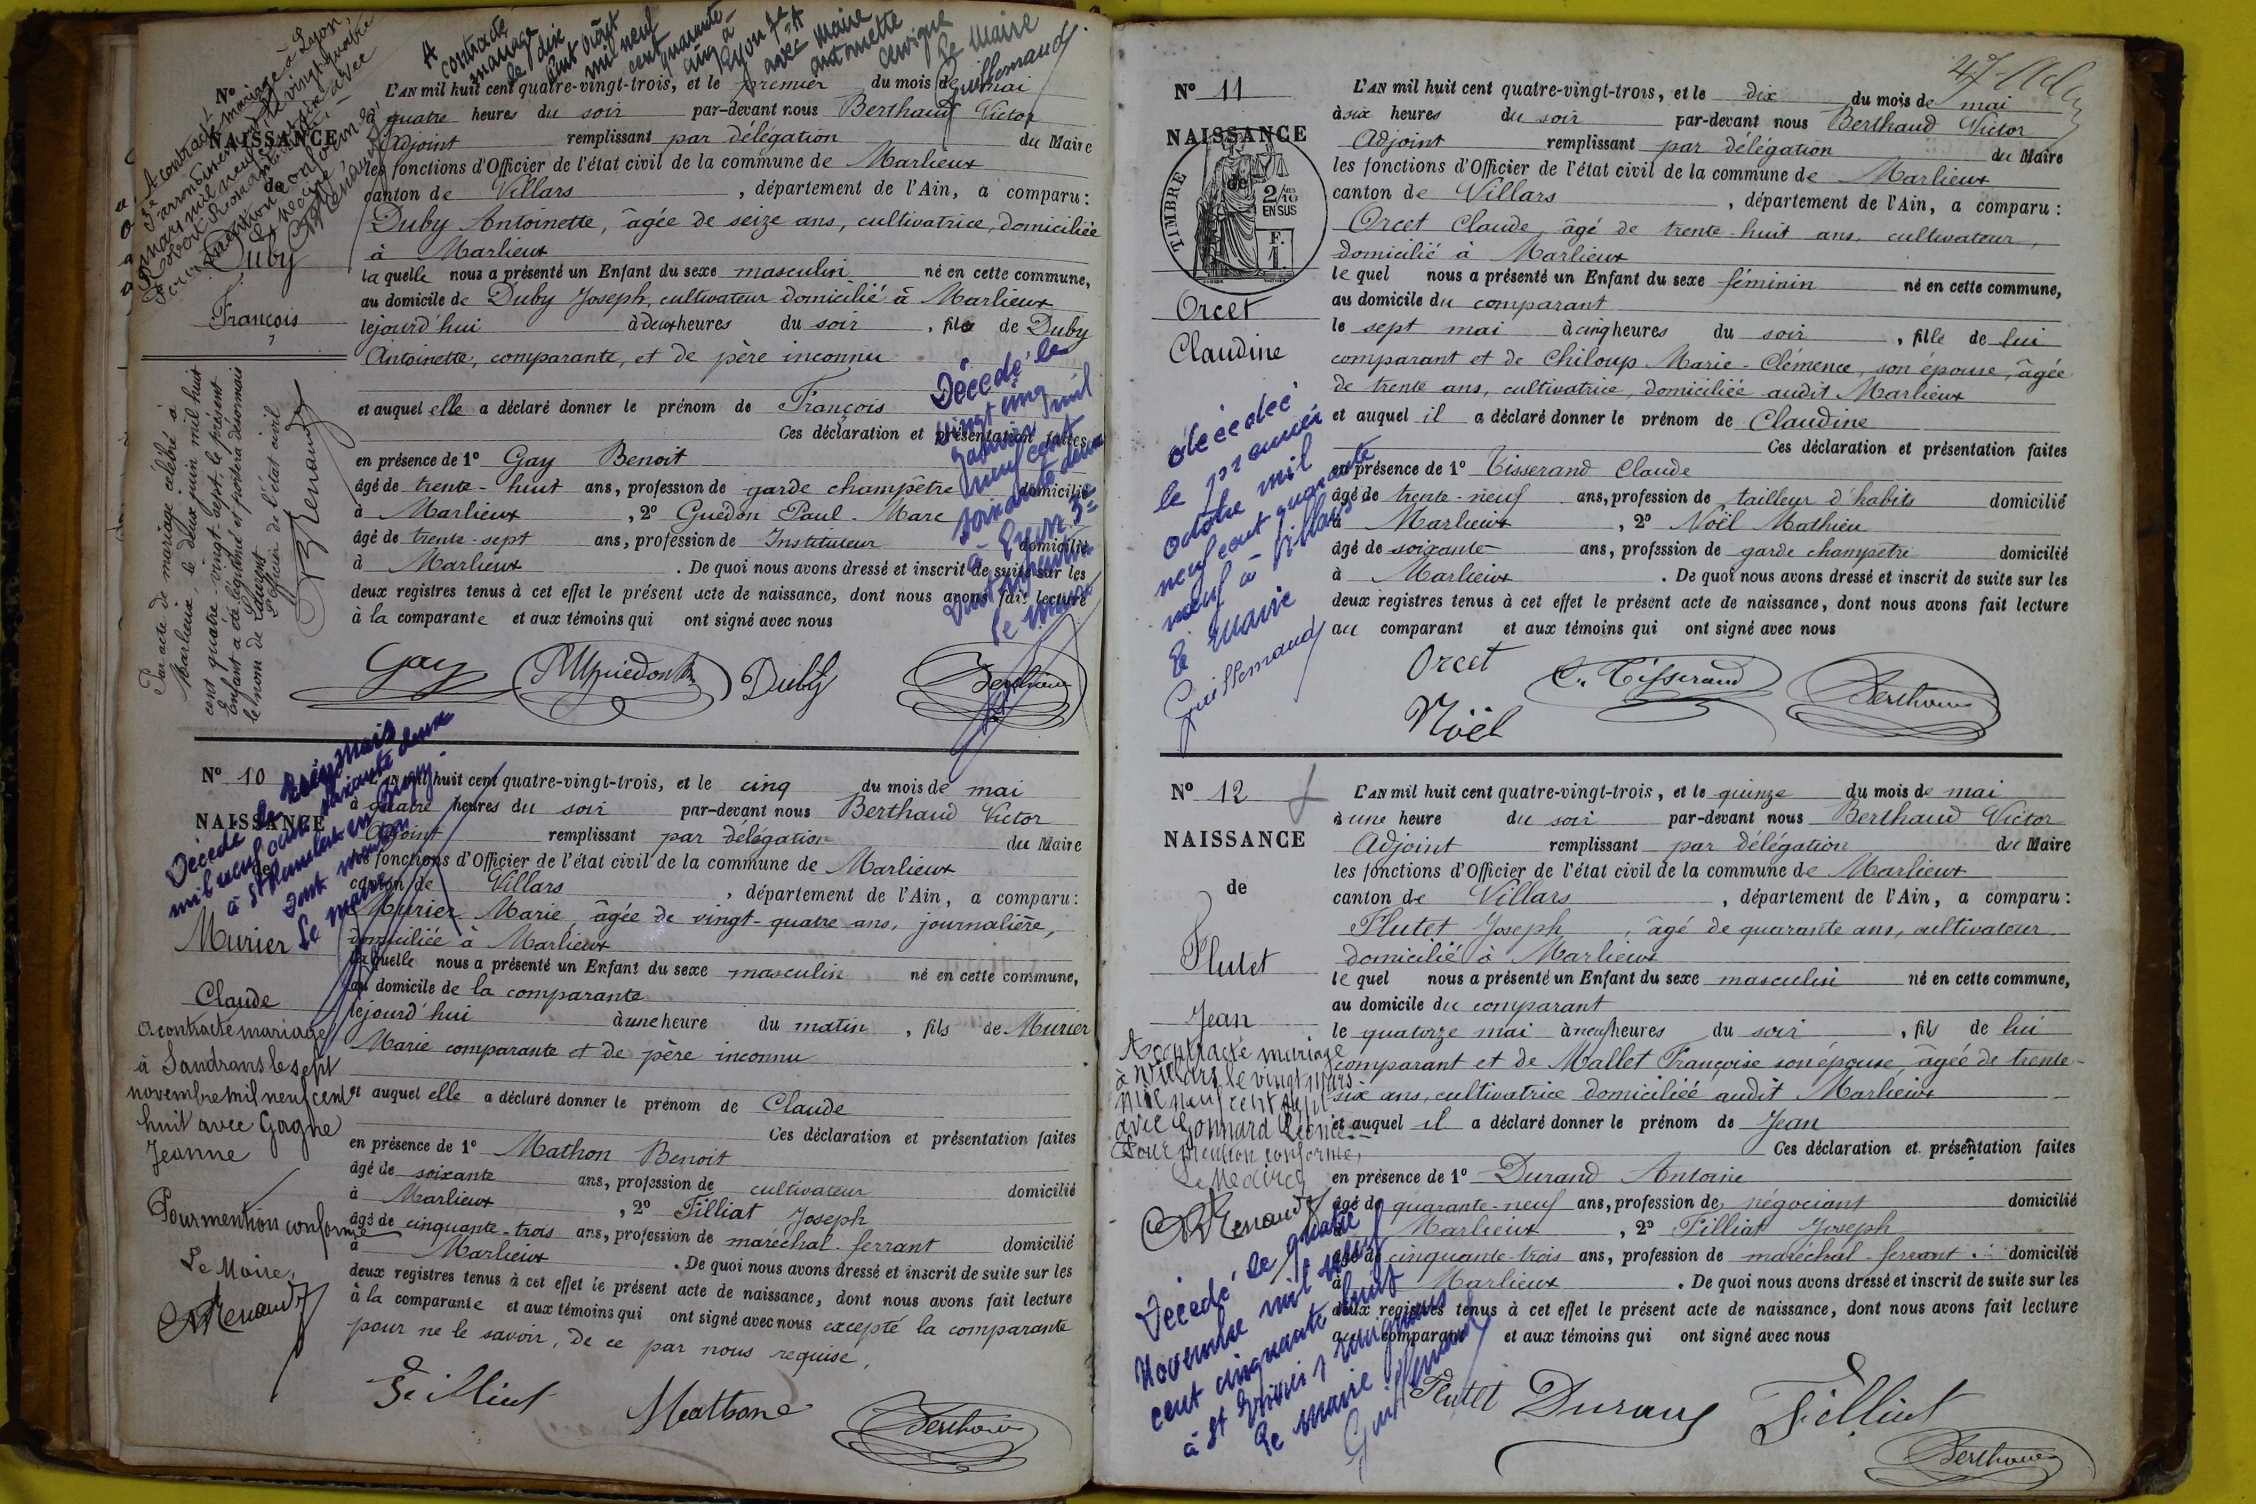 L'AN mil huit cent quatre-vingt-trois, et le premier du mois de mai
à quatre heures du soir par-devant nous Berthaud Victor
Adjoint remplissant par délégation du Maire
les fonctions d'Officier de l'état civil de la commune de Marlieux
canton de Villars, département de l'Ain, a comparu:
Duby Antoinette, âgée de seize ans, cultivatrice, domiciliée
à Marlieux
laquelle nous a présenté un Enfant du sexe masculin né en cette commune,
au domicile de Duby Joseph, cultivateur domicilié à Marlieux
lejourd'hui à deux heures du soir, fils de Duby
Antoinette, comparante, et de père inconnu
et auquel elle a déclaré donner le prénom de François
Ces déclaration et présentation faites
en présence de 1° Gay Benoit
âgé de trente-huit ans, profession de garde champêtre domicilié
à Marlieux, 2° Guédon Paul-Marc
âgé de trente-sept ans, profession de Instituteur domicilié
à Marlieux. De quoi nous avons dressé et inscrit de suite sur les
deux registres tenus à cet effet le présent acte de naissance, dont nous avons fait lecture
à la comparante et aux témoins qui ont signé avec nous
Gay Duby Berthaud
N°
NAISSANCE
de
Duby
François
A contracté
mariage
le dix
huit août
mil neuf
cent
quarante
cinq à
Lyon 7e
avec Marie
Antoinette
Le Maire
Guillemaud
Par acte de mariage célébré à
Marlieux, le deux juin mil huit
cent quatre-vingt-sept, le présent
Enfant a été légitimé et portera désormais
le nom de Laurent
L'officier de l'état civil
Renaud
Décédé le
vingt cinq
Janvier mil
neuf cent
soixante deux
à Lyon 3e
Dont mention
Le Maire
N° 10
NAISSANCE
de
Murier
Claude
Décédé le treize mars
mil neuf cent soixante deux
à St Rambert en Bugey
Dont mention
Le Maire
a contracté mariage
à Sandrans le sept
novembre mil neuf cent
huit avec Gagne
Jeanne
Pour mention conforme
Le Maire,
Renaud
L'AN mil huit cent quatre-vingt-trois, et le cinq du mois de mai
à quatre heures du soir par-devant nous Berthaud Victor
Adjoint remplissant par délégation du Maire
les fonctions d'Officier de l'état civil de la commune de Marlieux
canton de Villars, département de l'Ain, a comparu:
Murier Marie, âgée de vingt-quatre ans, journalière,
domiciliée à Marlieux
laquelle nous a présenté un Enfant du sexe masculin né en cette commune,
au domicile de la comparante
lejourd'hui à une heure du matin, fils de Murier
Marie comparante et de père inconnu
et auquel elle a déclaré donner le prénom de Claude
Ces déclaration et présentation faites
en présence de 1° Mathon Benoit
âgé de soixante ans, profession de cultivateur domicilié
à Marlieux, 2° Filliat Joseph
âgé de cinquante-trois ans, profession de maréchal-ferrant domicilié
à Marlieux. De quoi nous avons dressé et inscrit de suite sur les
deux registres tenus à cet effet le présent acte de naissance, dont nous avons fait lecture
à la comparante et aux témoins qui ont signé avec nous excepté la comparante
pour ne le savoir, de ce par nous requise,
Filliat Mathon Berthaud
N° 11
NAISSANCE
de
TIMBRE
2/10
EN SUS
F.
1.
Orcet
Claudine
décédée
le premier
octobre mil
neuf cent quarante
neuf à Villars
Le Maire
Guillemaud
L'AN mil huit cent quatre-vingt-trois, et le dix du mois de mai
à six heures du soir par-devant nous Berthaud Victor
Adjoint remplissant par délégation du Maire
les fonctions d'Officier de l'état civil de la commune de Marlieux
canton de Villars, département de l'Ain, a comparu:
Orcet Claude, âgé de trente-huit ans, cultivateur,
domicilié à Marlieux
lequel nous a présenté un Enfant du sexe féminin né en cette commune,
au domicile du comparant
le sept mai à cinq heures du soir, fille de lui
comparant et de Chiloup Marie-Clémence, son épouse, âgée
de trente ans, cultivatrice, domiciliée audit Marlieux
et auquel il a déclaré donner le prénom de Claudine
Ces déclaration et présentation faites
en présence de 1° Tisserand Claude
âgé de trente-neuf ans, profession de tailleur d'habits domicilié
à Marlieux, 2° Noël Mathieu
âgé de soixante ans, profession de garde champêtre domicilié
à Marlieux. De quoi nous avons dressé et inscrit de suite sur les
deux registres tenus à cet effet le présent acte de naissance, dont nous avons fait lecture
au comparant et aux témoins qui ont signé avec nous
Orcet C. Tisserand Berthaud
Noël
N° 12
NAISSANCE
de
Flutet
Jean
A contracté mariage
à Villars le vingt mars
mil neuf cent sept
avec Gonnard
Pour mention conforme,
Le Maire
Renaud
Décédé le quatre
novembre mil neuf
cent cinquante huit
à St
Le Maire
Guillemaud
L'AN mil huit cent quatre-vingt-trois, et le quinze du mois de mai
à une heure du soir par-devant nous Berthaud Victor
Adjoint remplissant par délégation du Maire
les fonctions d'Officier de l'état civil de la commune de Marlieux
canton de Villars, département de l'Ain, a comparu:
Flutet Joseph, âgé de quarante ans, cultivateur
domicilié à Marlieux
lequel nous a présenté un Enfant du sexe masculin né en cette commune,
au domicile du comparant
le quatorze mai à neuf heures du soir, fils de lui
comparant et de Mallet Françoise son épouse, âgée de trente-
six ans, cultivatrice domiciliée audit Marlieux
et auquel il a déclaré donner le prénom de Jean
Ces déclaration et présentation faites
en présence de 1° Durand Antoine
âgé de quarante-neuf ans, profession de négociant domicilié
à Marlieux, 2° Filliat Joseph
âgé de cinquante-trois ans, profession de maréchal-ferrant. domicilié
à Marlieux. De quoi nous avons dressé et inscrit de suite sur les
deux registres tenus à cet effet le présent acte de naissance, dont nous avons fait lecture
au comparant et aux témoins qui ont signé avec nous
Flutet Durand Filliat
Berthaud